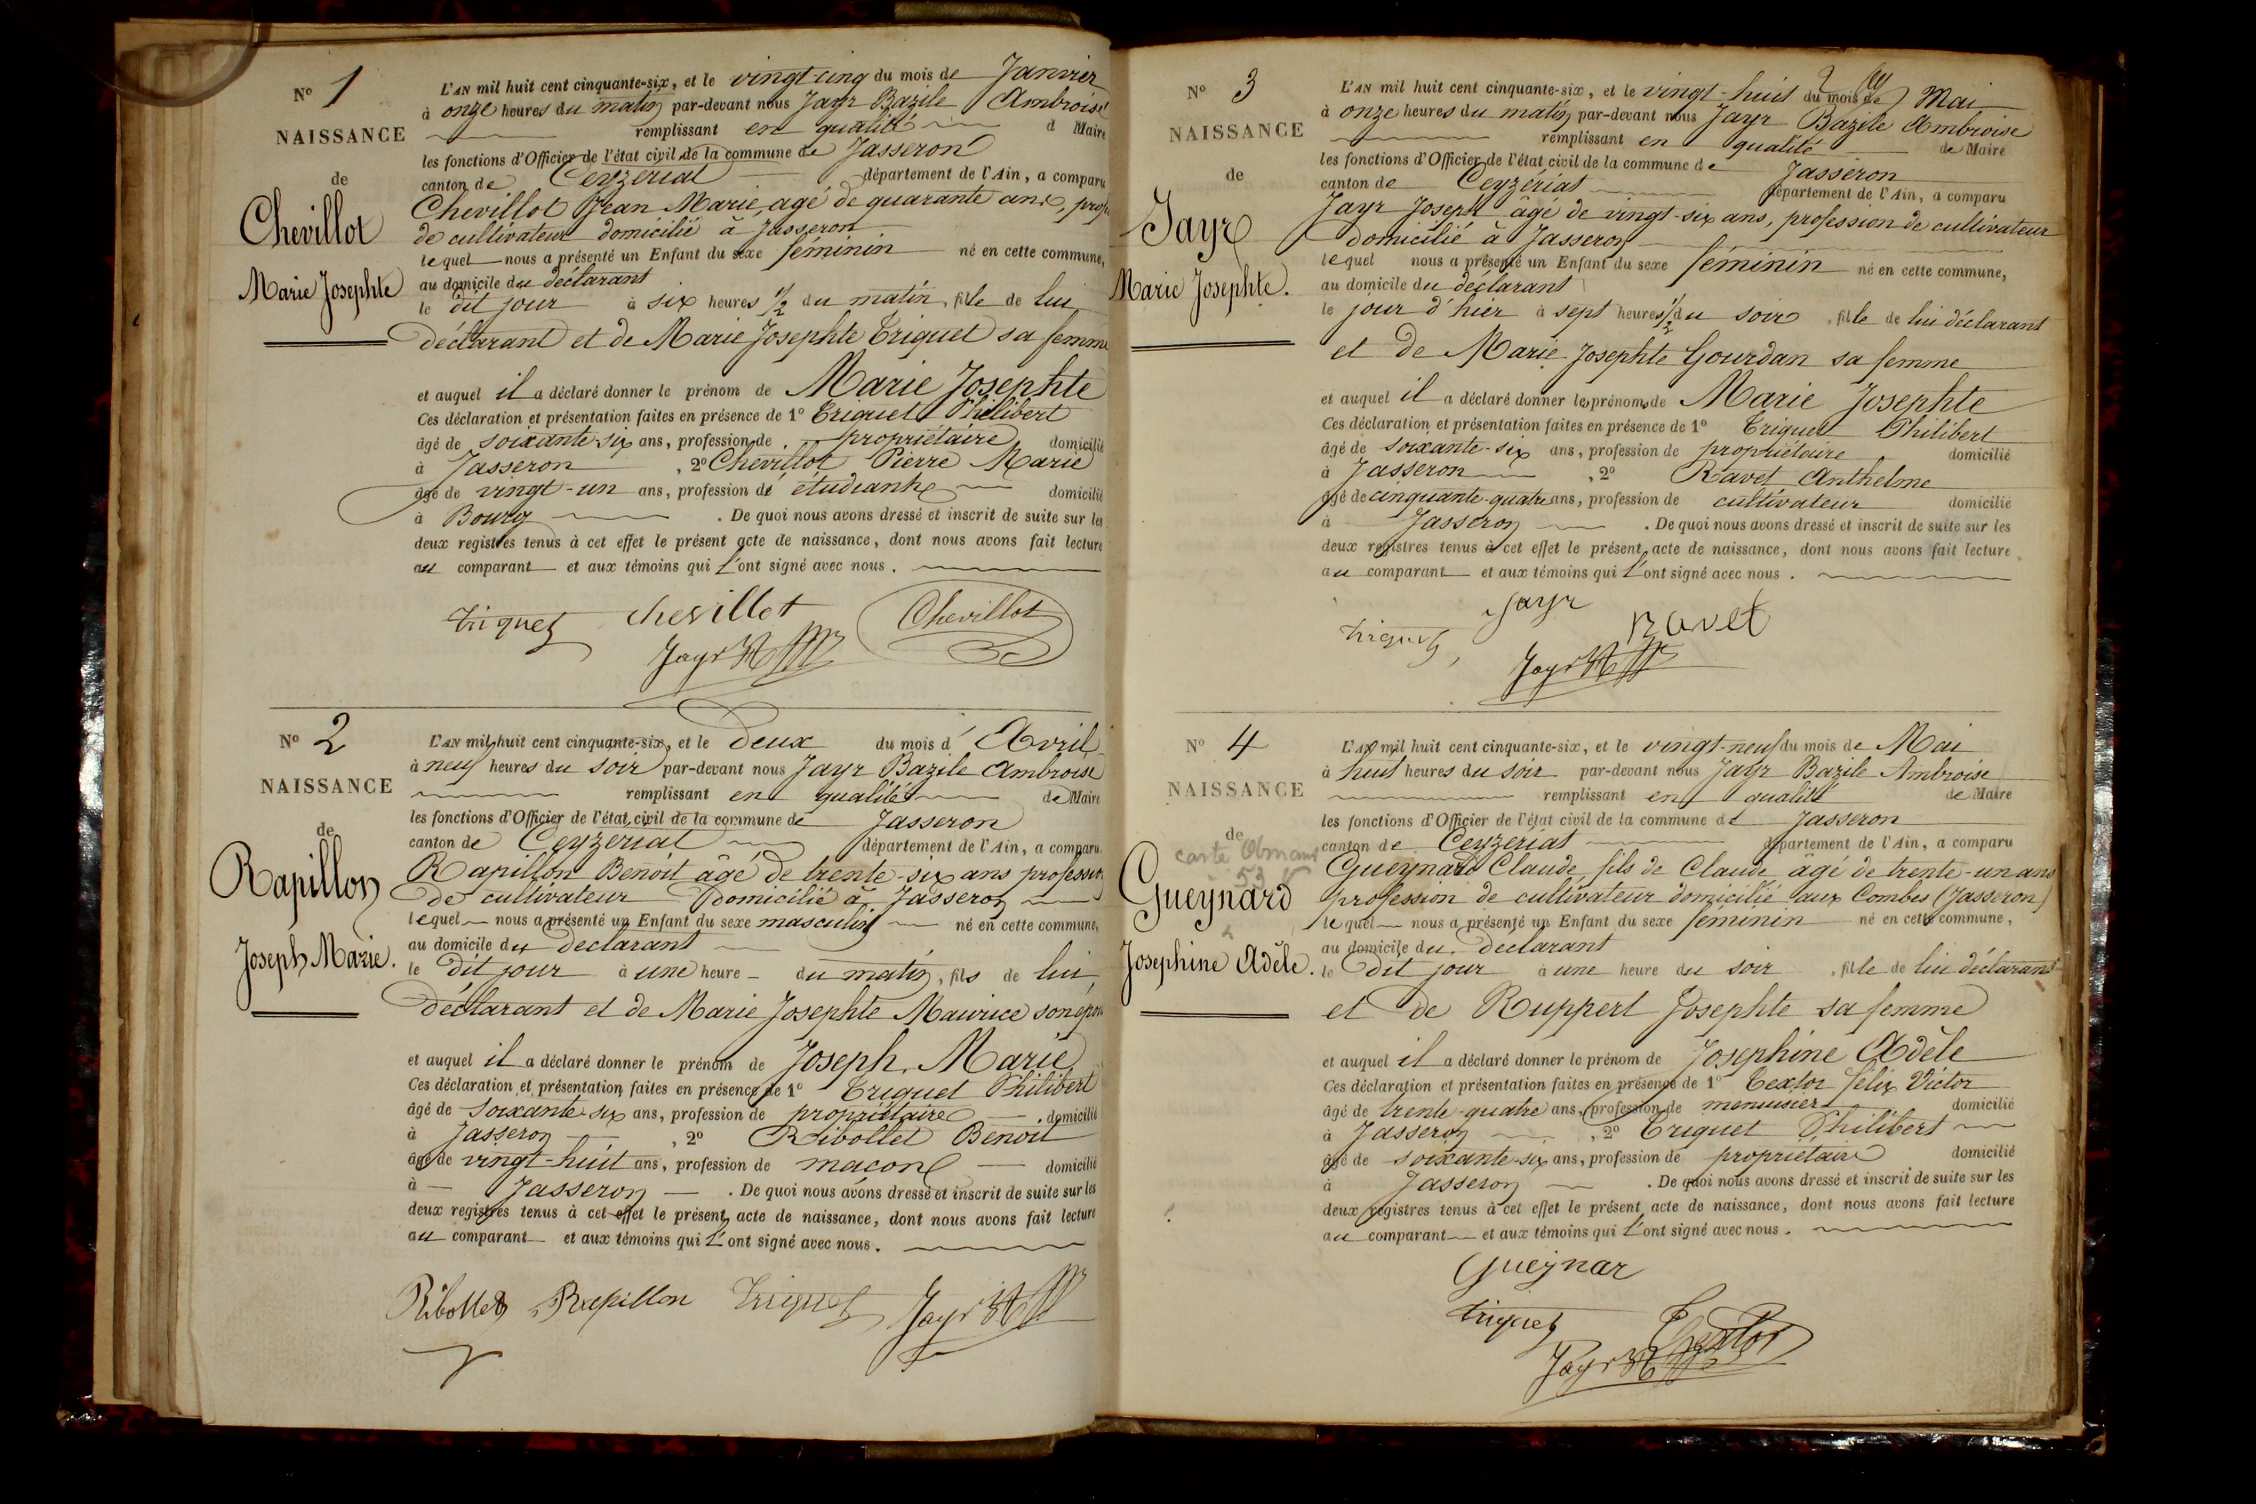 N° 1
NAISSANCE
de
Chevillot
Marie Josephte
L'AN mil huit cent cinquante-six, et le vingt-cinq du mois de Janvier
à onze heures du matin par-devant nous Jayr Bazile Ambroise
remplissant en qualité d Maire
les fonctions d'Officier de l'état civil de la commune de Jasseron
canton de Ceyzériat département de l'Ain, a comparu
Chevillot Jean Marie, agé de quarante ans, prof
de cultivateur domicilié à Jasseron
lequel nous a présenté un Enfant du sexe féminin né en cette commune,
au domicile du déclarant
le dit jour à six heures 1/2 du matin, fille de lui
déclarant et de Marie Josephte Triquet sa femme
et auquel il a déclaré donner le prénom de Marie Josephte
Ces déclaration et présentation faites en présence de 1° Triquet Philibert
âgé de soixante-six ans, profession de propriétaire domicilié
à Jasseron, 2° Chevillot Pierre Marie
âgé de vingt-un ans, profession de étudiant domicilié
à Bourg. De quoi nous avons dressé et inscrit de suite sur les
deux registres tenus à cet effet le présent acte de naissance, dont nous avons fait lecture
au comparant et aux témoins qui l'ont signé avec nous.
Triquet chevillot Chevillot
Jayr
N° 2
NAISSANCE
de
Rapillon
Joseph Marie.
L'AN mil huit cent cinquante-six, et le Deux du mois d' Avril
à neuf heures du soir par-devant nous Jayr Bazile Ambroise
remplissant en qualité de Maire
les fonctions d'Officier de l'état civil de la commune de Jasseron
canton de Ceyzériat département de l'Ain, a comparu
Rapillon Benoit âgé de trente-six ans profession
de cultivateur Domicilié à Jasseron
lequel nous a présenté un Enfant du sexe masculin né en cette commune,
au domicile du declarant
le dit jour à une heure du matin, fils de lui
déclarant et de Marie Josephte Maurice son épou
et auquel il a déclaré donner le prénom de Joseph. Marie
Ces déclaration et présentation faites en présence de 1° Triquet Philibert
âgé de soixante-six ans, profession de propriétaire, domicilié
à Jasseron, 2° Ribollet Benoit
âgé de vingt-huit ans, profession de maçon domicilié
à Jasseron. De quoi nous avons dressé et inscrit de suite sur les
deux registres tenus à cet effet le présent acte de naissance, dont nous avons fait lecture
au comparant et aux témoins qui l'ont signé avec nous.
Ribollet Rapillon Triquet Jayr
N° 3
NAISSANCE
de
Jayr
Marie Josephte.
L'AN mil huit cent cinquante-six, et le vingt-huit du mois de Mai
à onze heures du matin par-devant nous Jayr Bazile Ambroise
remplissant en qualité de Maire
les fonctions d'Officier de l'état civil de la commune de Jasseron
canton de Ceyzériat département de l'Ain, a comparu
Jayr Joseph âgé de vingt-six ans, profession de cultivateur
domicilié à Jasseron
lequel nous a présenté un Enfant du sexe féminin né en cette commune,
au domicile du déclarant
le jour d'hier à sept heures 1/2 du soir, fille de lui déclarant
et de Marie Josephte Gourdan sa femme
et auquel il a déclaré donner les prénoms de Marie Josephte
Ces déclaration et présentation faites en présence de 1° Triquet Philibert
âgé de soixante-six ans, profession de propriétaire domicilié
à Jasseron, 2° Ravet Anthelme
âgé de cinquante-quatre ans, profession de cultivateur domicilié
à Jasseron. De quoi nous avons dressé et inscrit de suite sur les
deux registres tenus à cet effet le présent acte de naissance, dont nous avons fait lecture
au comparant et aux témoins qui l'ont signé avec nous.
Jayr
Triquet Ravet
Jayr
N° 4
NAISSANCE
de
Gueynard
Josephine Adèle.
L'AN mil huit cent cinquante-six, et le vingt-neuf du mois de Mai
à huit heures du soir par-devant nous Jayr Bazile Ambroise
remplissant en qualité de Maire
les fonctions d'Officier de l'état civil de la commune de Jasseron
canton de Ceyzériat département de l'Ain, a comparu
Gueynard Claude, fils de Claude âgé de trente-un ans
profession de cultivateur domicilié aux Combes (Jasseron)
lequel nous a présenté un Enfant du sexe féminin né en cette commune,
au domicile du declarant
le dit jour à une heure du soir, fille de lui déclarant
et de Ruppert Josephte sa femme
et auquel il a déclaré donner le prénom de Josephine Adèle
Ces déclaration et présentation faites en présence de 1° Textor félix Victor
âgé de trente-quatre ans, profession de menuisier domicilié
à Jasseron, 2° Triquet Philibert
âgé de soixante-six ans, profession de propriétaire domicilié
à Jasseron. De quoi nous avons dressé et inscrit de suite sur les
deux registres tenus à cet effet le présent acte de naissance, dont nous avons fait lecture
au comparant et aux témoins qui l'ont signé avec nous.
Gueynar
Triquet Textor
Jayr